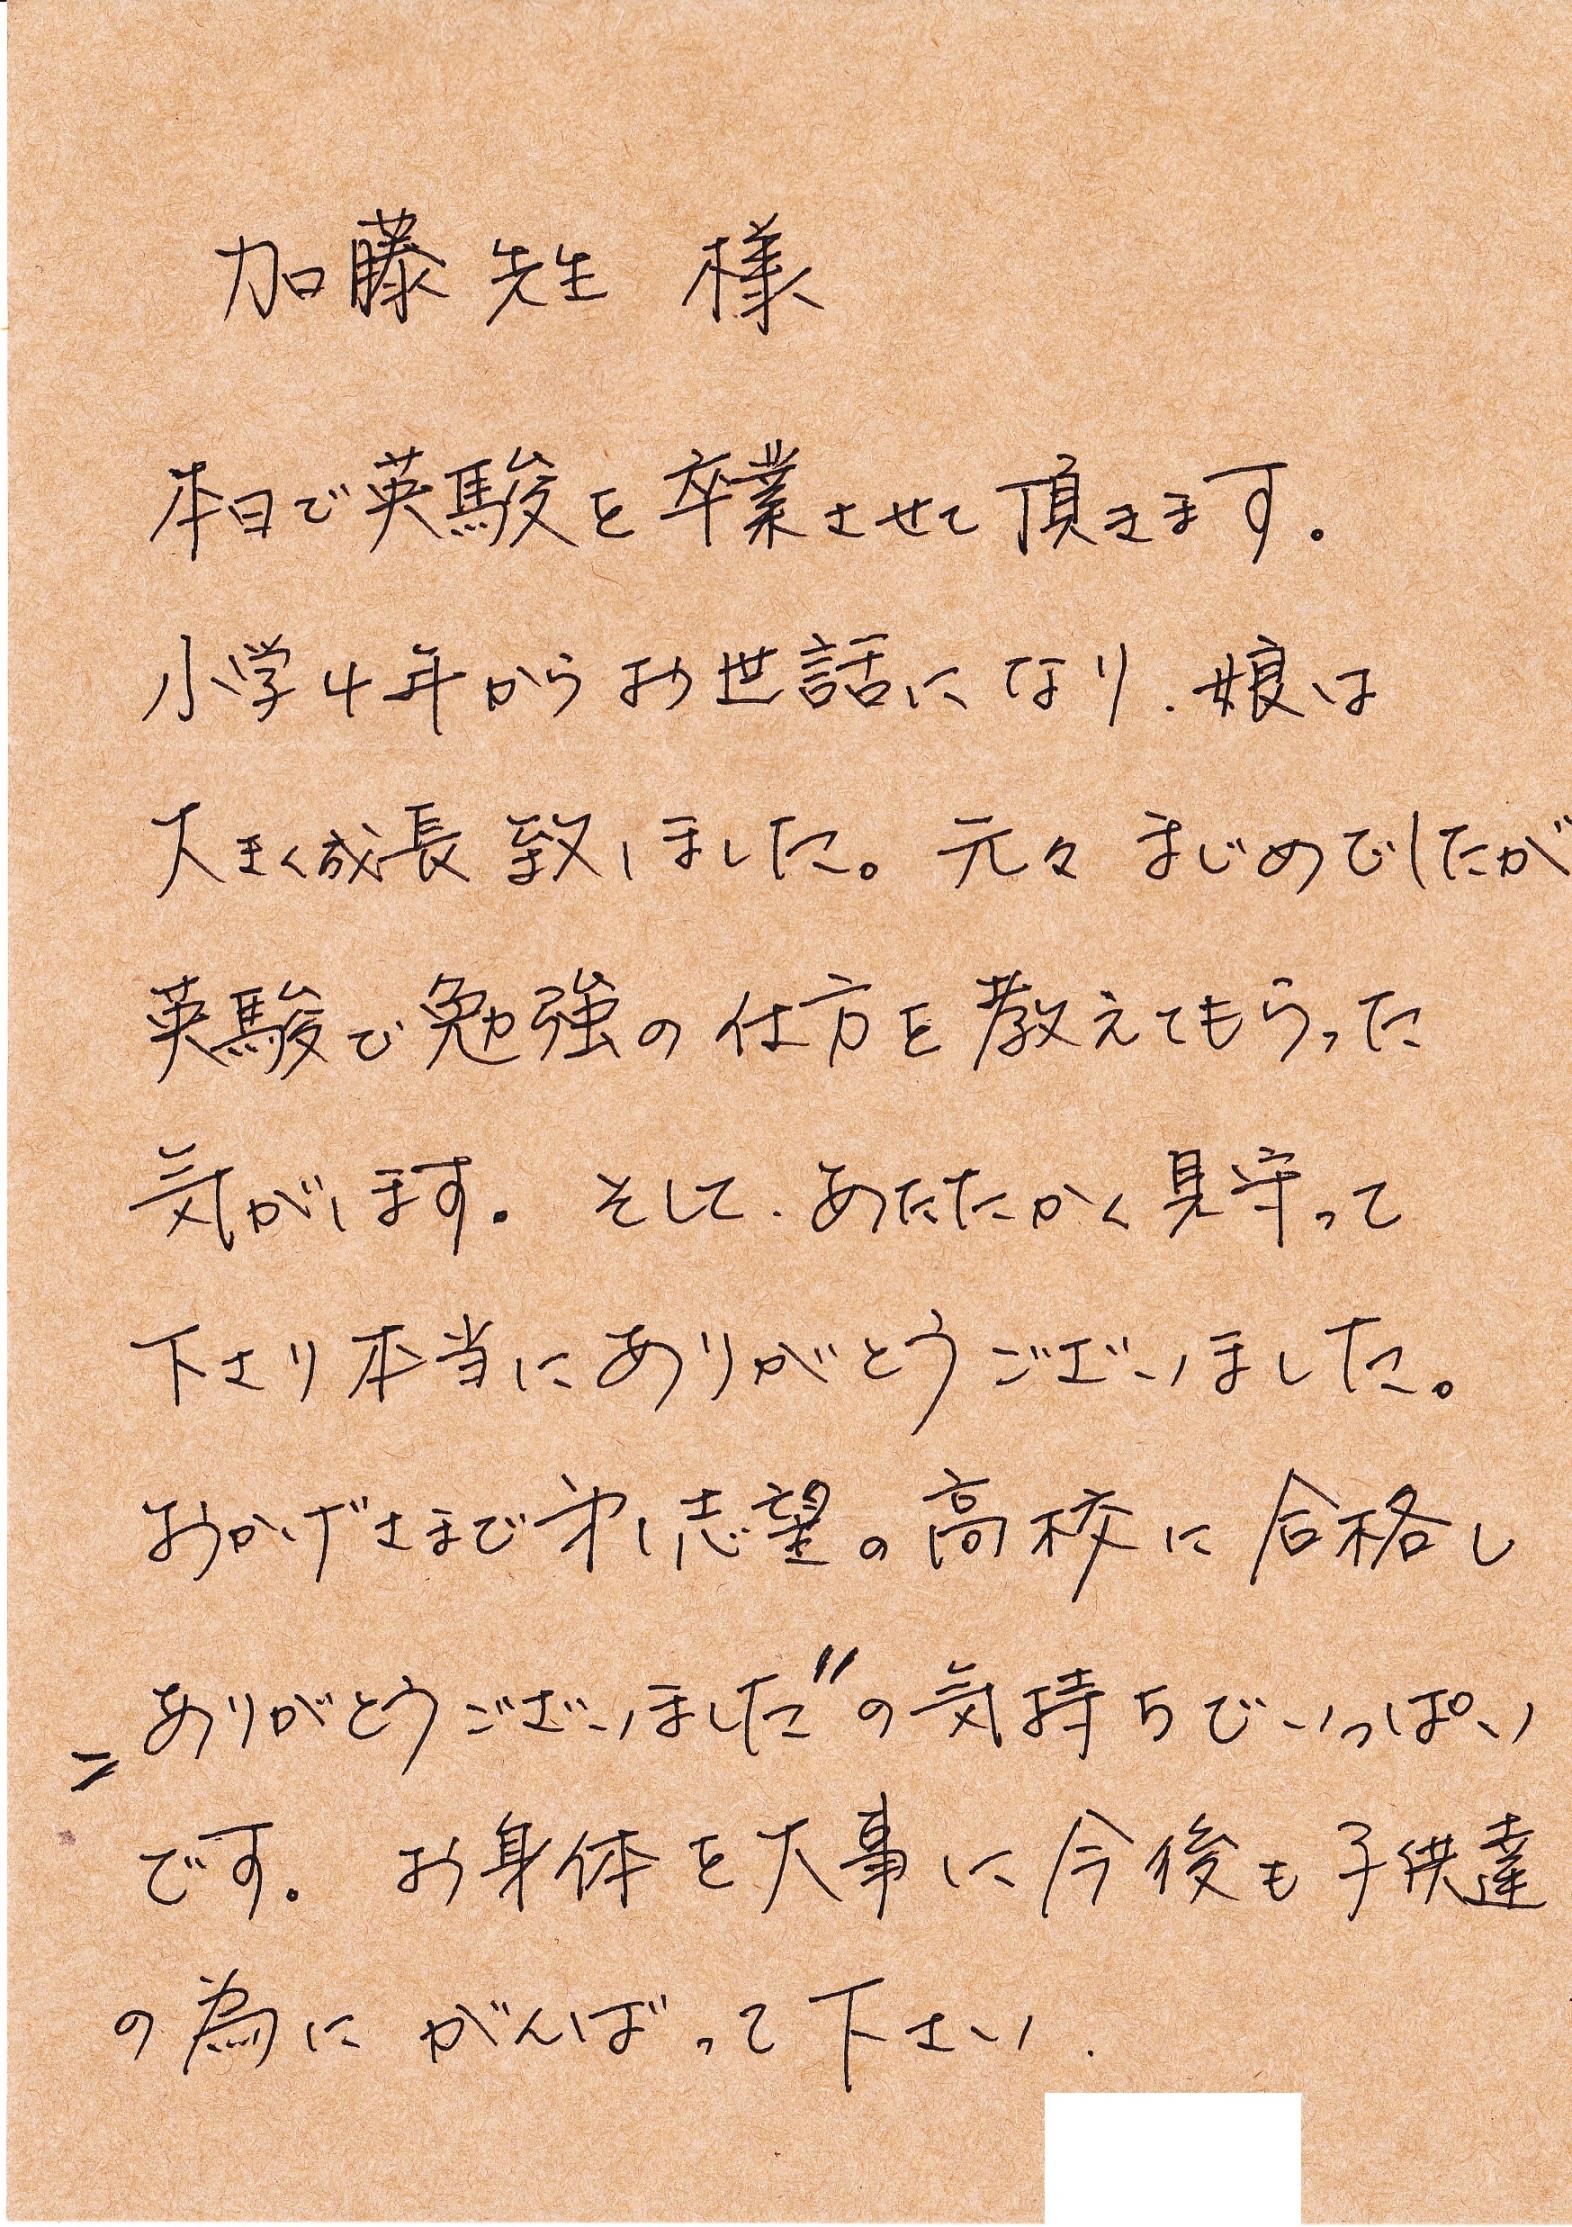 加藤先生 様
本日で英駿を卒業させて頂きます。
小学4年からお世話になり、娘は
大きく成長致しました。元々まじめでしたが
英駿で勉強の仕方を教えてもらった
気がします。そして、あたたかく見守って
下さり本当にありがとうございました。
おかげさまで第1志望の高校に合格し
〝ありがとうございました〟の気持ちでいっぱい
です。お身体を大事に今後も子供達
の為にがんばって下さい。